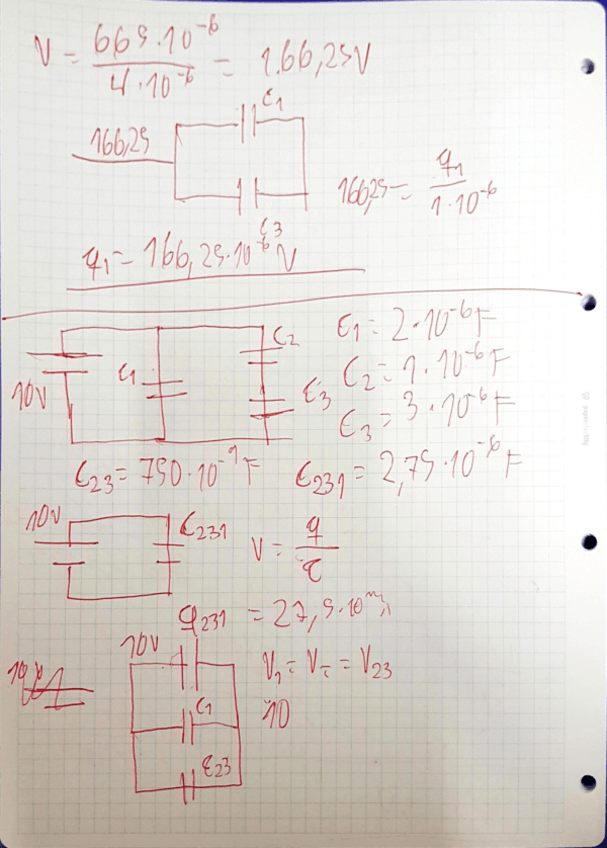 V = 665·10⁻⁶ / 4·10⁻⁶ = 166,25V
C1
166,25
C3
166,25 = q1 / 1·10⁻⁶
q1 = 166,25·10⁻⁶ V
C1 = 2·10⁻⁶ F
C2
C2 = 1·10⁻⁶ F
10V
C1
C3
C3 = 3·10⁻⁶ F
C23 = 750·10⁻⁹ F
C231 = 2,75·10⁻⁶ F
10V
C231
V = q / C
q231 = 27,5·10
10V
V1 = V = V23
10
C1
C23